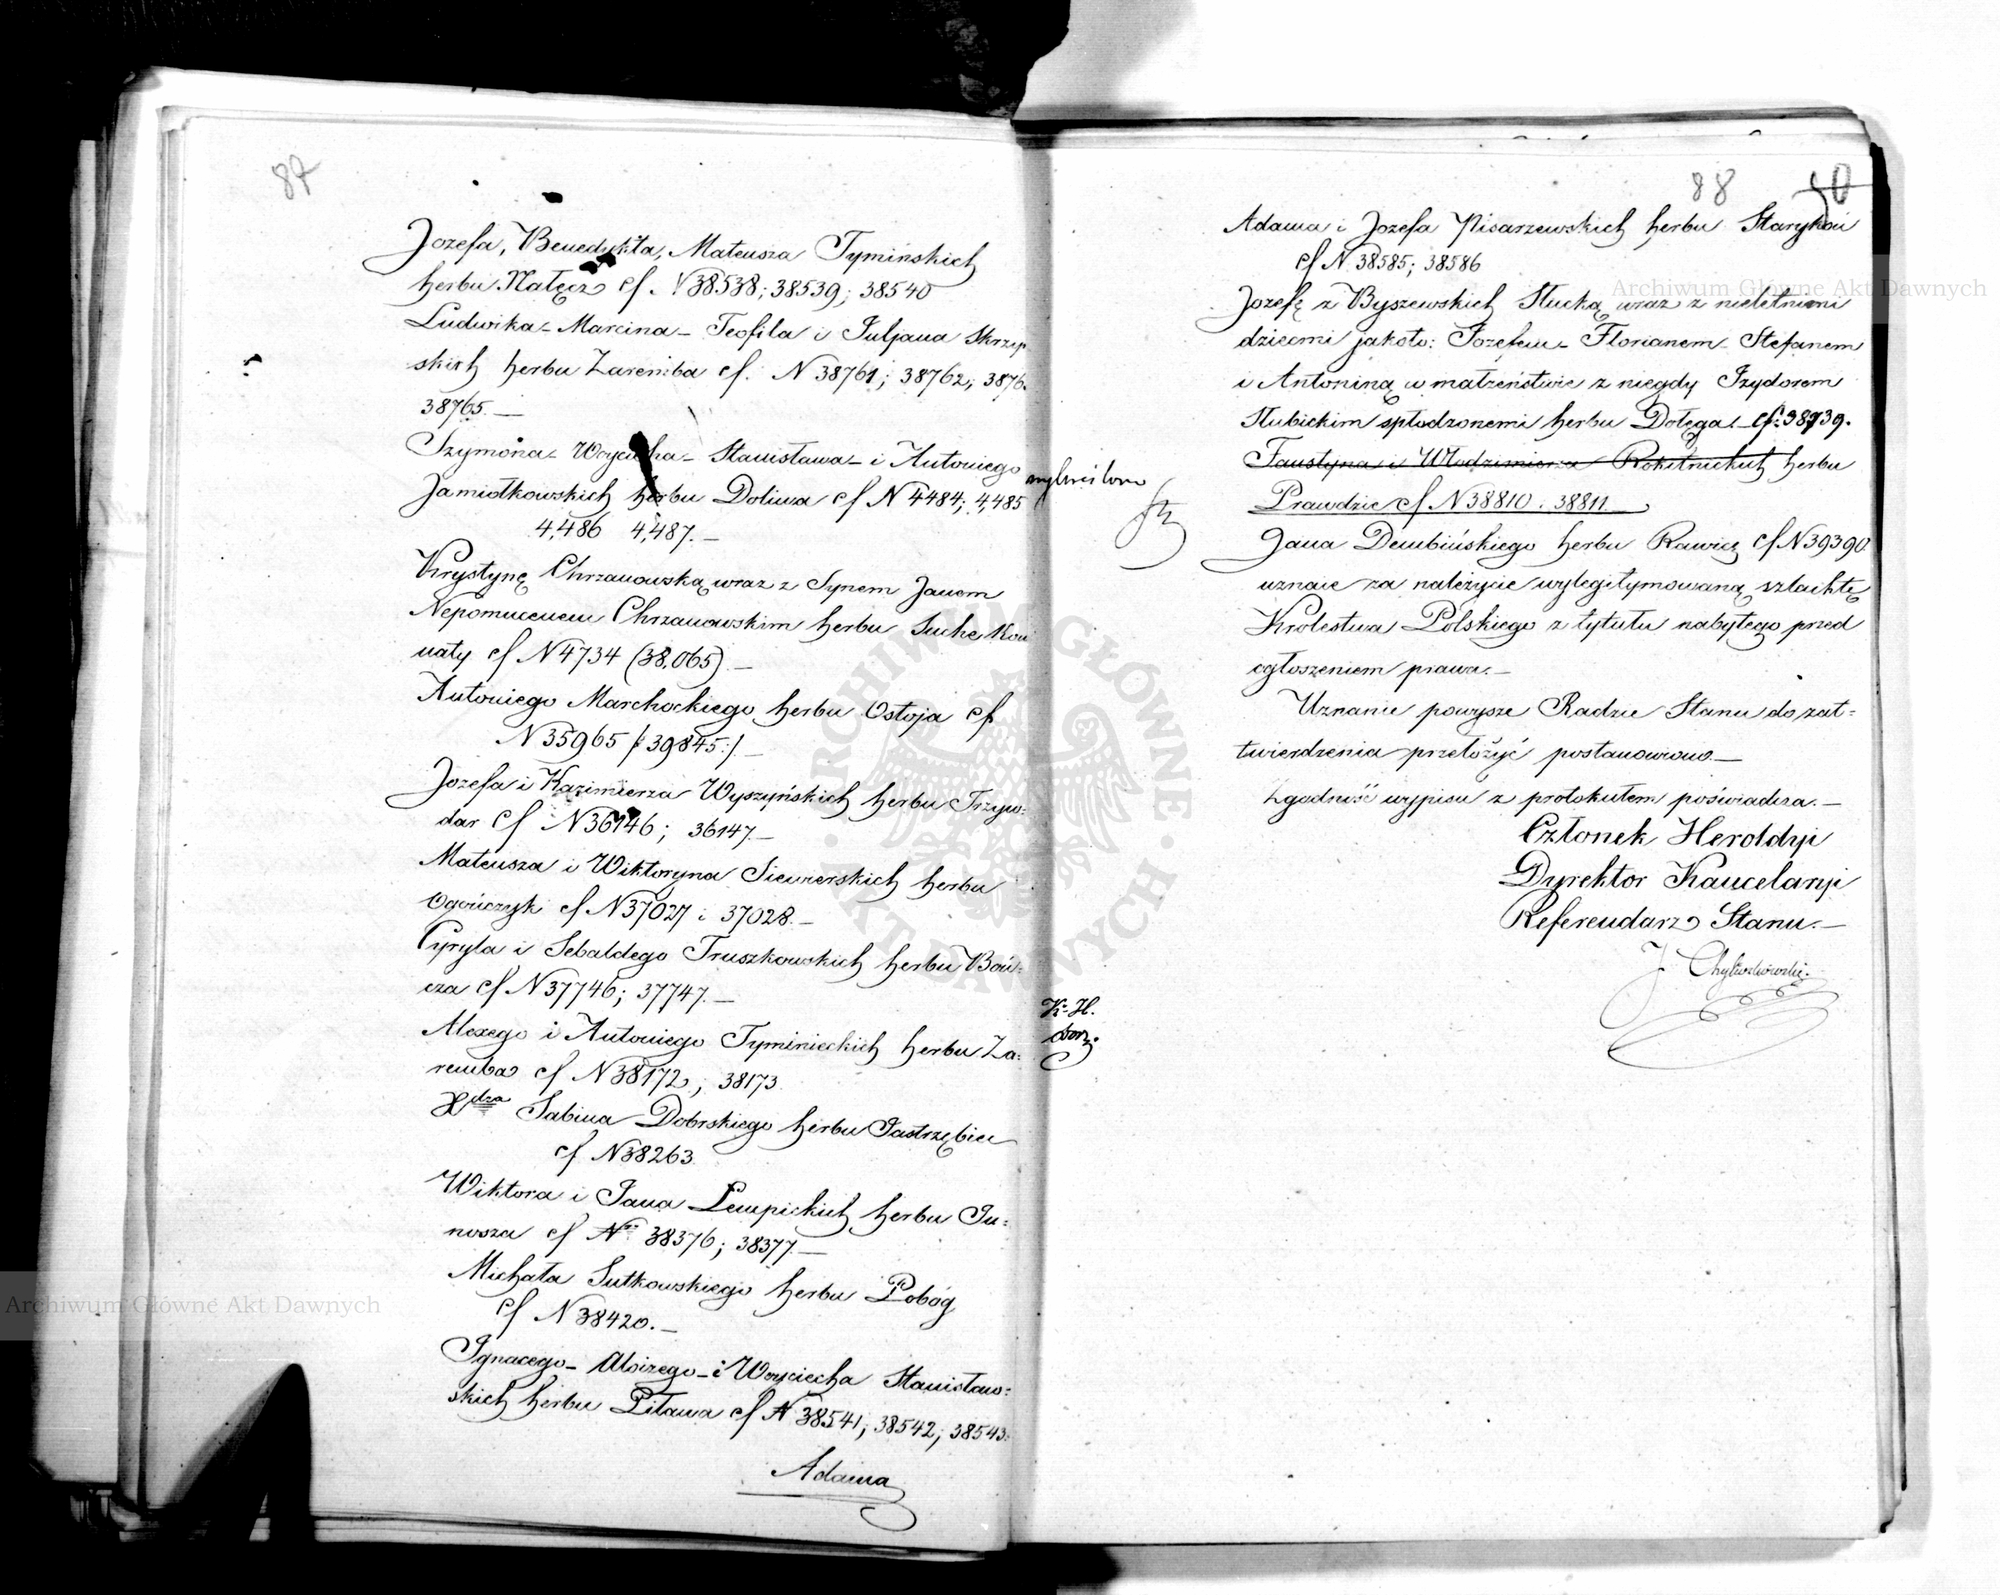 87
Jozefa, Benedykta, Mateusza Tymińskich
herbu Nałęcz cf. N 38538; 38539; 38540
Ludwika - Marcina - Teofila i Juljana Skrzyp
skich herbu Zaremba cf. N 38761; 38762; 3876
38765. —
Szymona - Woyciecha - Stanisława - i Antoniego
Jamiołkowskich herbu Doliwa cf N 4484; 4,485
4,486 4,487. —
Krystynę Chrzanowską wraz z Synem Janem
Nepomucenem Chrzanowskim herbu Suche Kom
naty cf N 4734 (38,065) —
Antoniego Marchockiego herbu Ostoja cf
N 35965 /:39845:/ —
Jozefa i Kazimierza Wyszyńskich herbu Trzyw-
dar cf N 36146; 36147. —
Mateusza i Wiktoryna Siewierskich herbu
Ogończyk cf N 37027 i 37028. —
Cyryla i Sebaldego Truszkowskich herbu Boń-
cza cf N 37746; 37747. —
Alexego i Antoniego Tyminieckich herbu Za-
remba cf N 38172; 38173
Xdza Sabina Dobrskiego herbu Jastrzębiec
cf N 38263
Wiktora i Jana Lempickich herbu Ju-
nosza cf No 38376; 38377. —
Michała Sutkowskiego herbu Pobóg
cf N 38420. —
Ignacego - Aloizego - i Woyciecha Stanisław-
skich herbu Pilawa cf N 38541; 38542; 38543.
Adama
K. H.
88
Adama i Jozefa Pisarzewskich herbu Starykoń
cf N 38585; 38586
Jozefę z Byszewskich Słucką wraz z nieletniemi
dziećmi jakoto: Jozefem - Florianem - Stefanem
i Antoniną w małżeństwie z niegdy Izydorem
Słubickim spłodzonemi herbu Dołęga - cf: 38739.
Faustyna i Włodzimierza Rokitnickich herbu
Prawdzic cf N 38810. 38811. —
Jana Dembińskiego herbu Rawicz cf N 39390
uznaie za należycie wylegitymowaną szlachtę
Krolestwa Polskiego z tytułu nabytego przed
ogłoszeniem prawa. —
Uznanie powyższe Radzie Stanu do zat-
twierdzenia przełożyć postanowiono. —
Zgodność wypisu z protokułem poświadcza. —
Członek Heroldyi
Dyrektor Kancelaryi
Referendarz Stanu. —
Archiwum Główne Akt Dawnych
Archiwum Główne Akt Dawnych
ARCHIWUM GŁÓWNE
AKT DAWNYCH